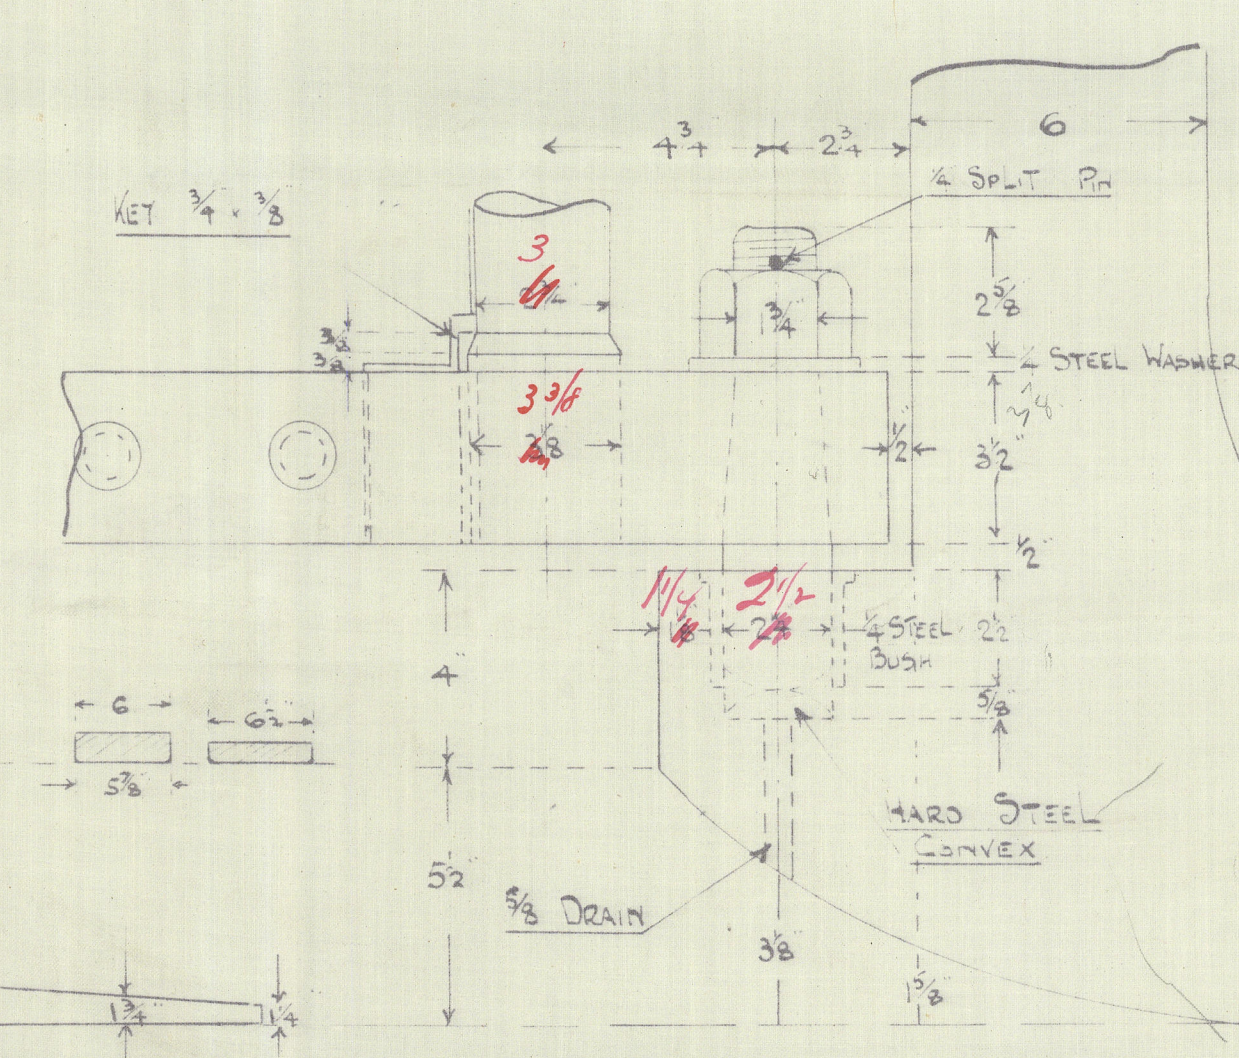 6
4 3/4" 2 3/4"
1/4 SPLIT PIN
KEY 3/4" × 3/8"
3
2 5/8"
1 3/4"
3/8
3/8"
1/4 STEEL WASHER
3 3/8
1/2"
3 1/2"
1/2"
1 1/4 2 1/2
1/4 STEEL
BUSH
2 1/2"
4"
5/8"
6 6 1/2"
5 7/8"
HARD STEEL
CONVEX
5 1/2"
5/8 DRAIN
3 1/8"
1 5/8"
1 3/4" 1 1/4